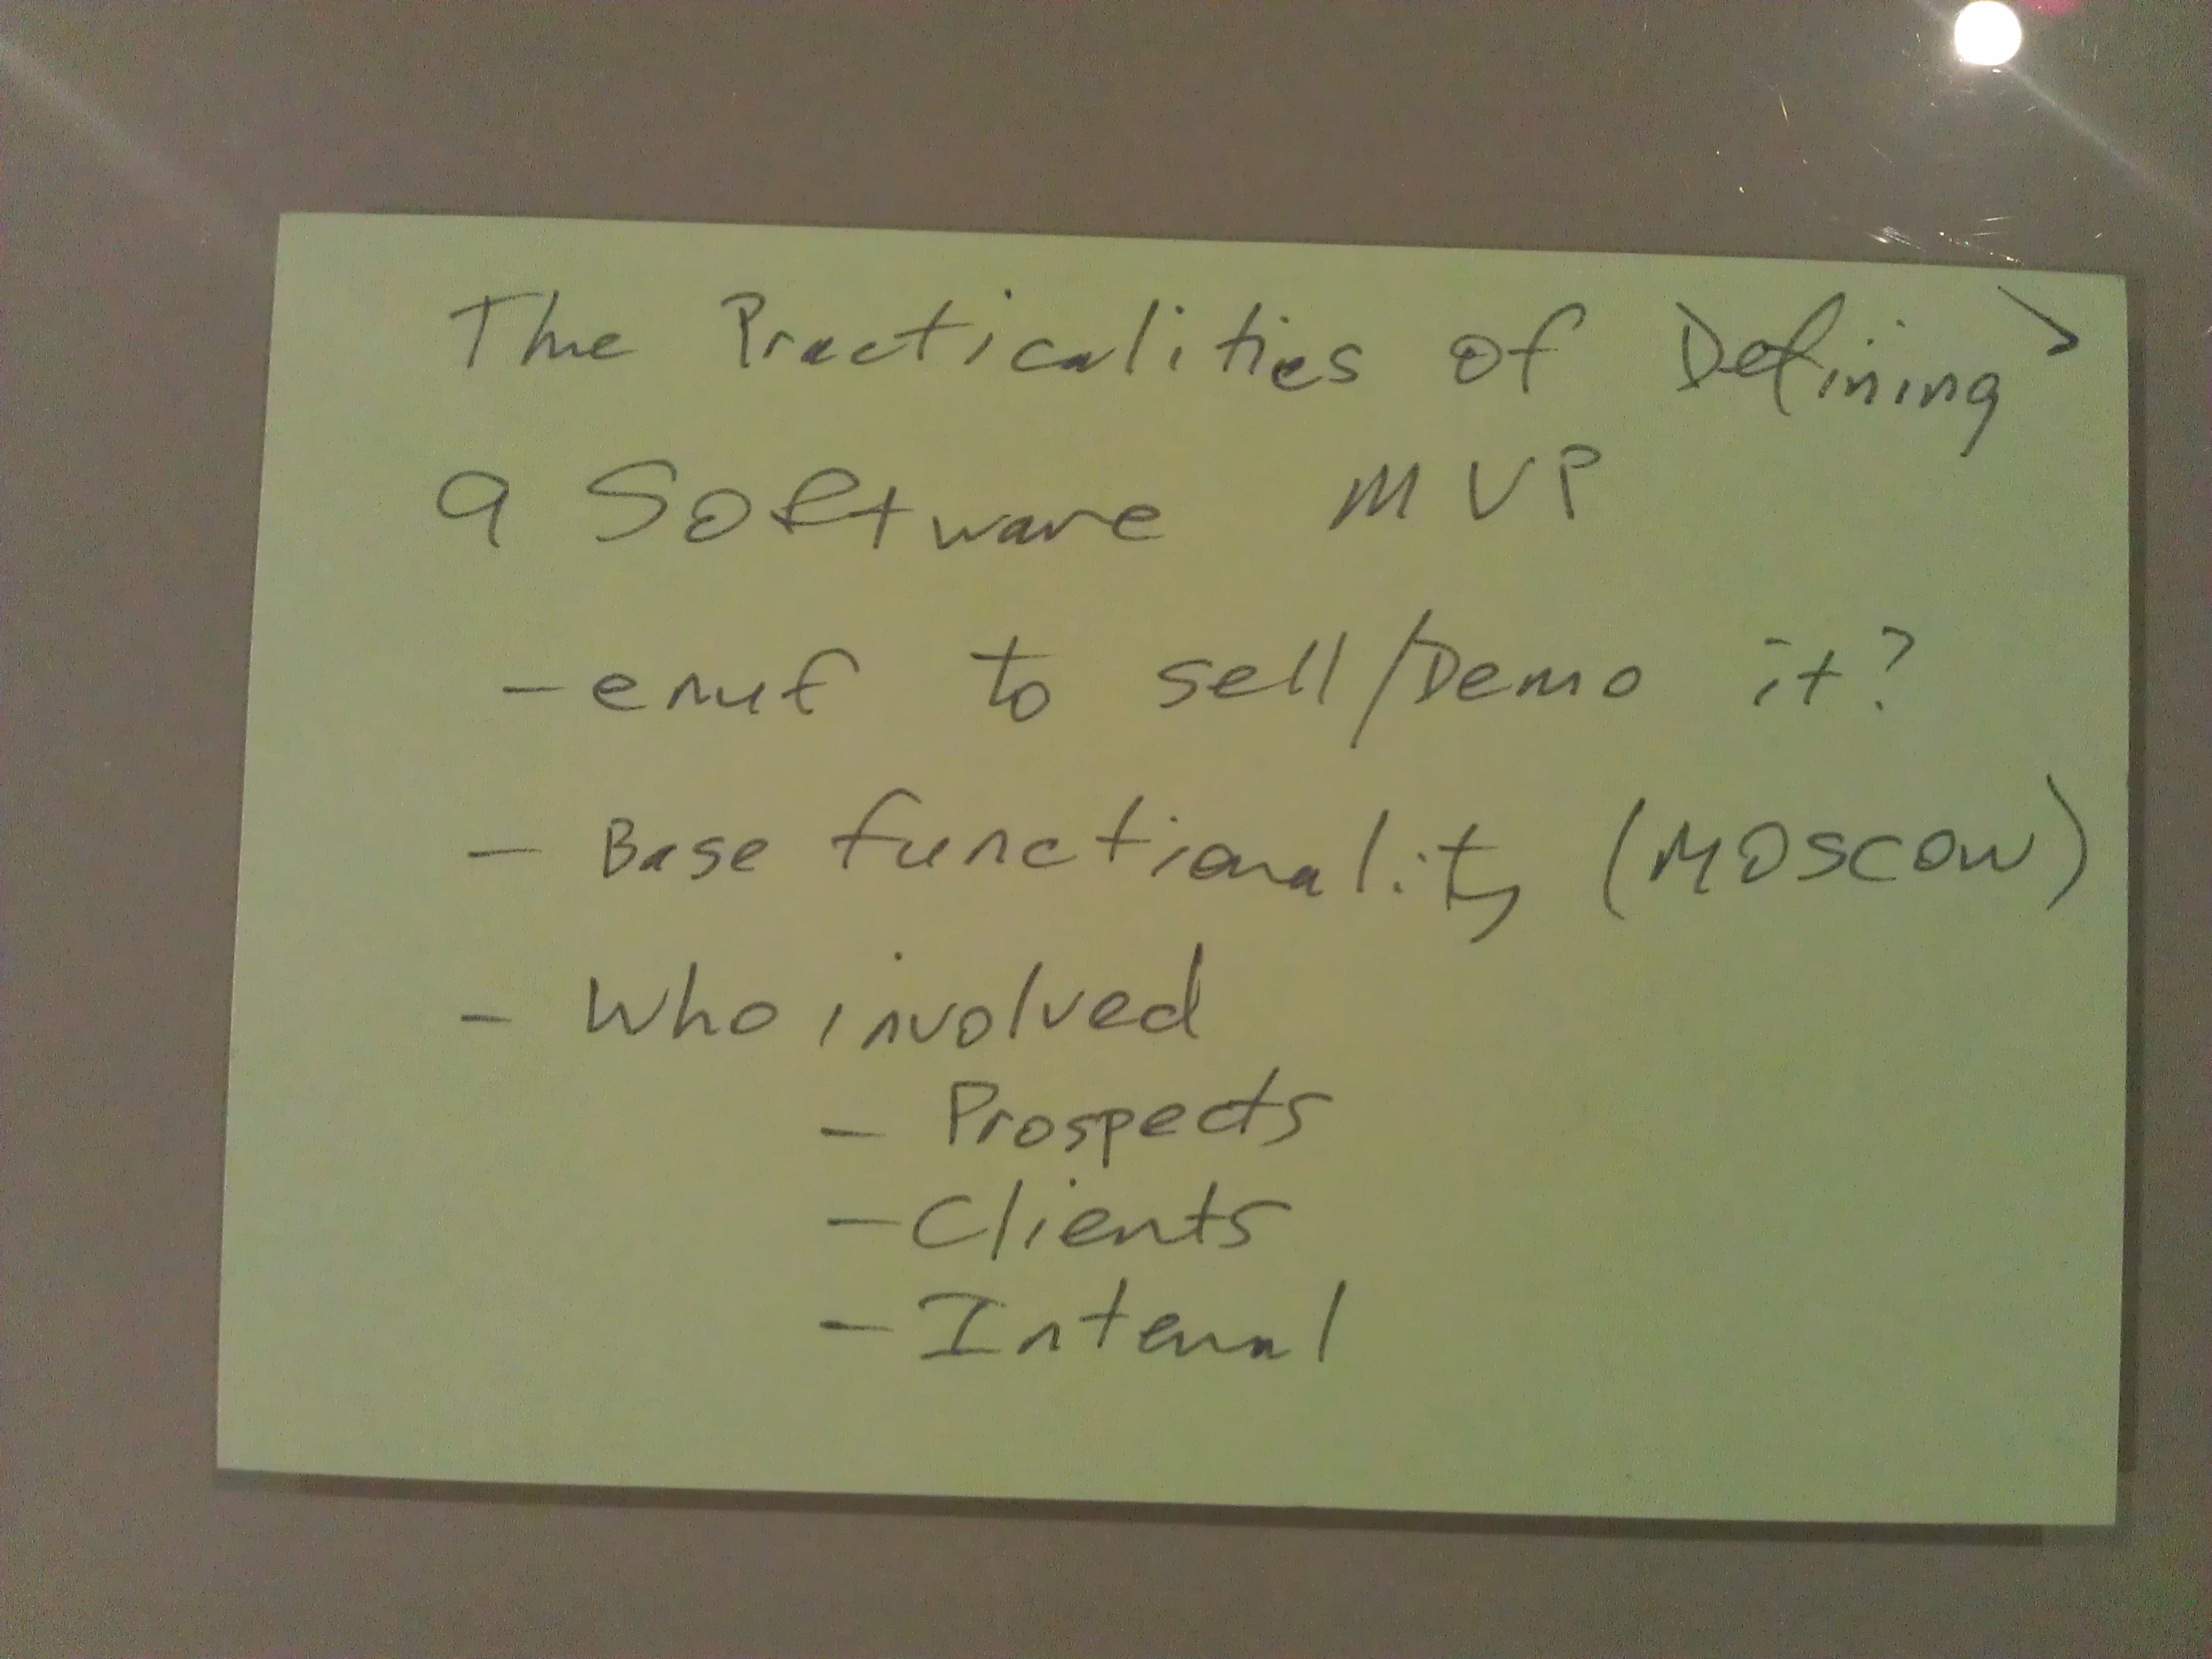 The Practicalities of Defining >
a Software MVP
- enuf to sell/Demo it?
- Base functionality (MOSCOW)
- Who involved
- Prospects
- Clients
- Internal